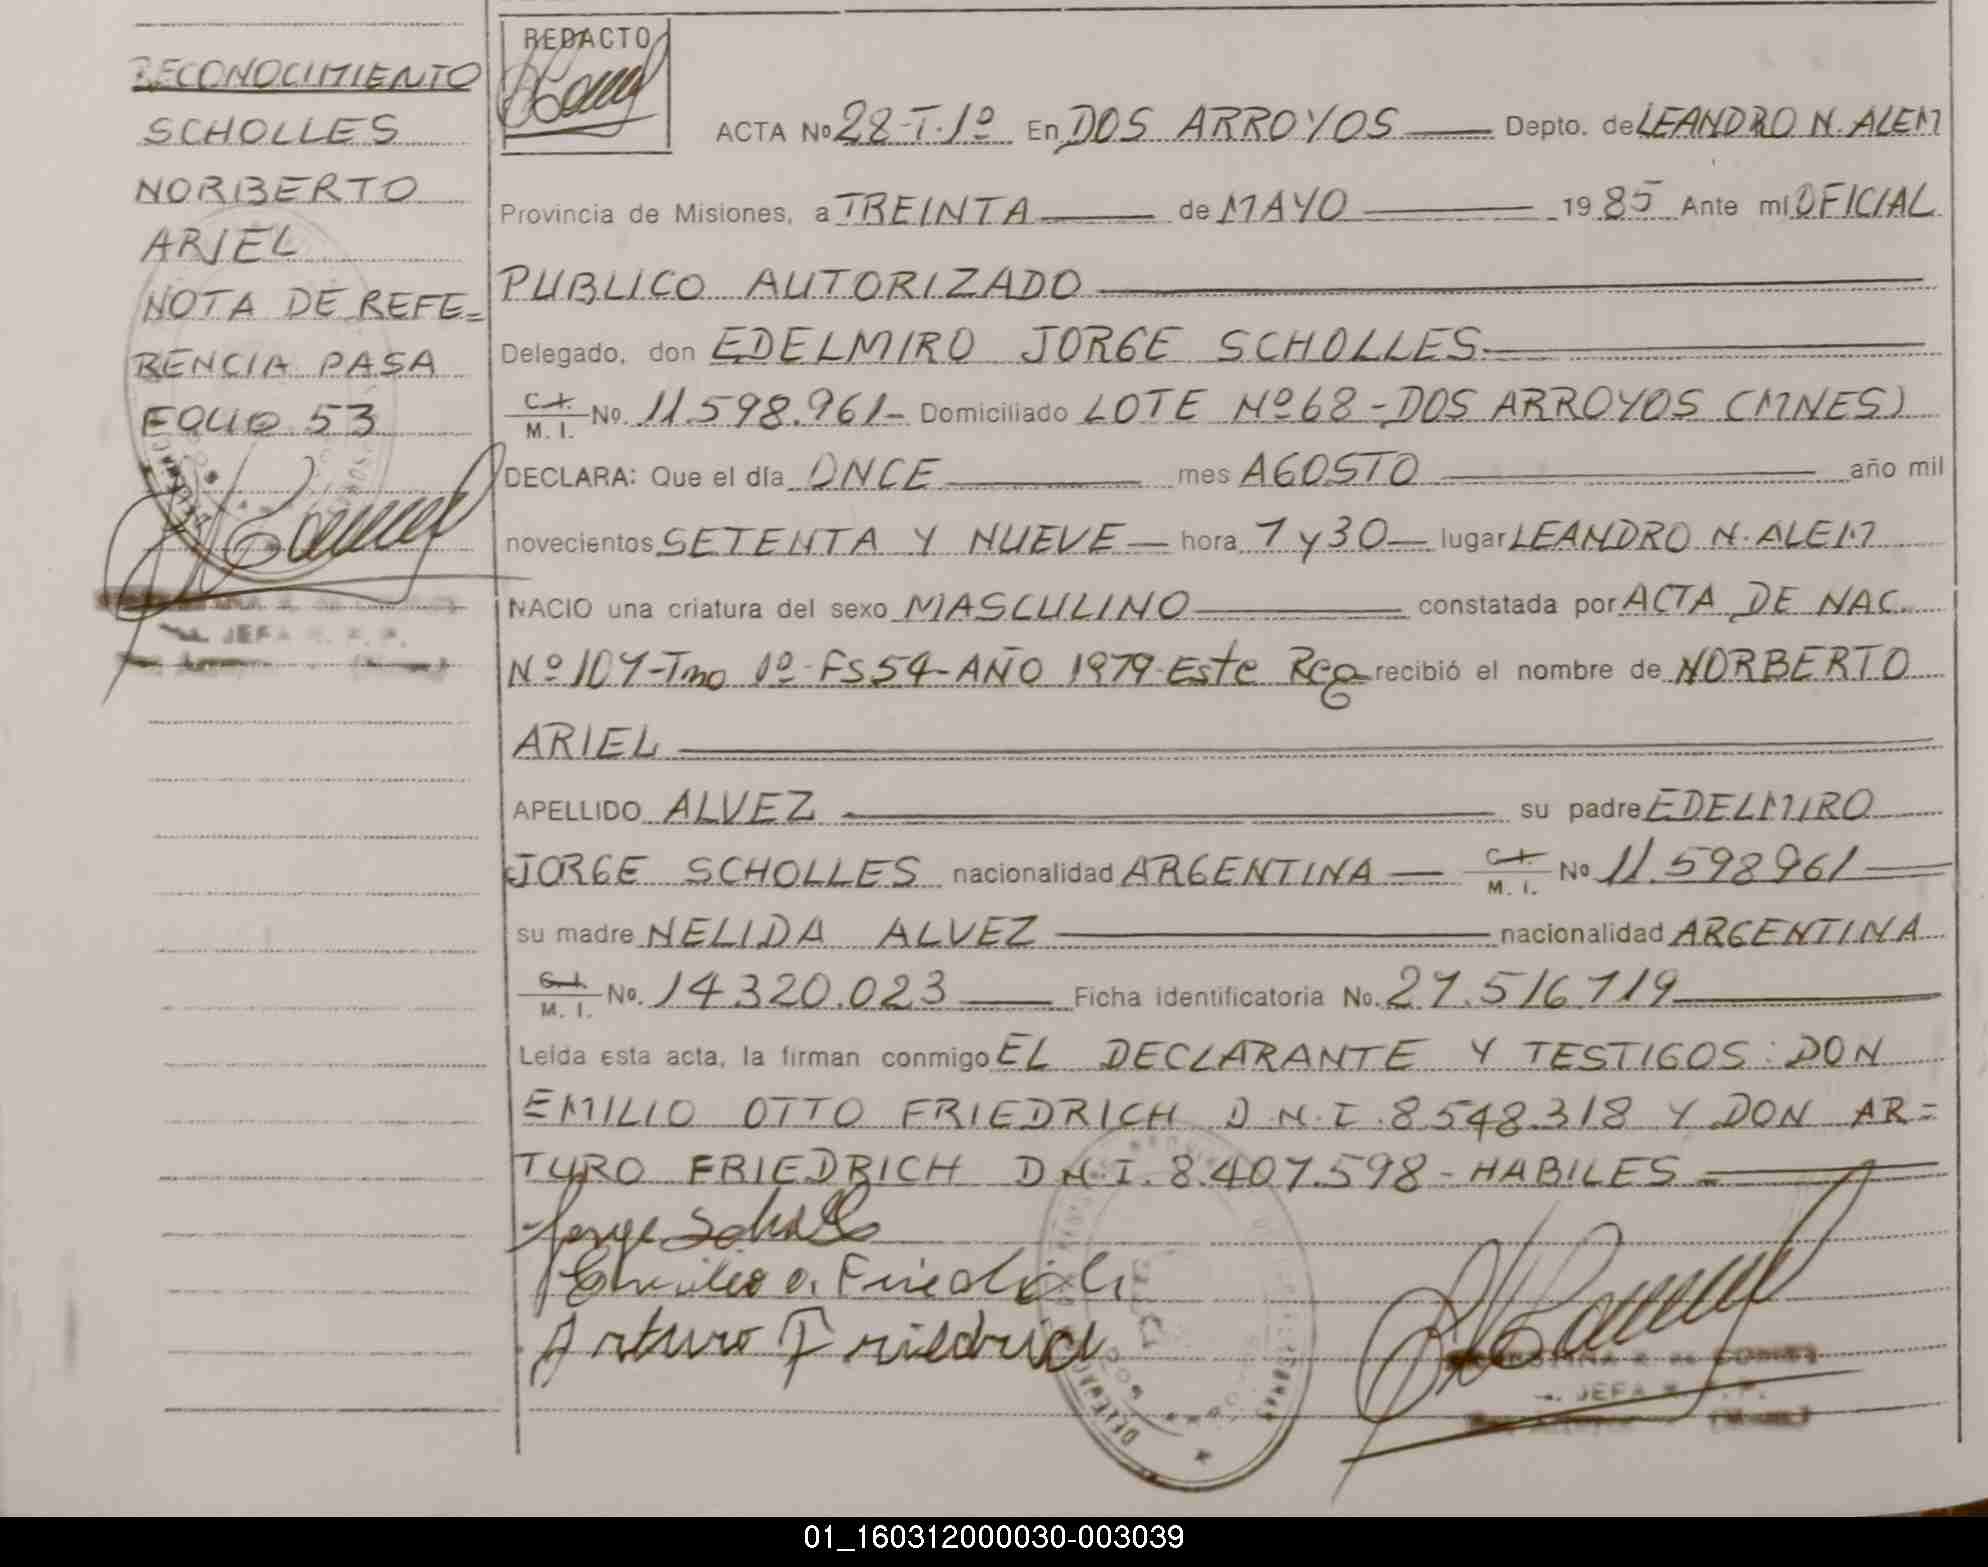 RECONOCIMIENTO
SCHOLLES
NORBERTO
ARIEL
NOTA DE REFE=
RENCIA PASA
FOLIO 53
JEFA
REDACTO
ACTA No 28-T.1º En DOS ARROYOS Depto. de LEANDRO N. ALEM
Provincia de Misiones, a TREINTA de MAYO 1985 Ante mí OFICIAL
PUBLICO AUTORIZADO
Delegado, don EDELMIRO JORGE SCHOLLES
C.I. M. I. No. 11.598.961- Domiciliado LOTE Nº68-DOS ARROYOS (MNES)
DECLARA: Que el día ONCE mes AGOSTO año mil
novecientos SETENTA Y NUEVE hora 7 y 30 lugar LEANDRO N. ALEM
NACIO una criatura del sexo MASCULINO constatada por ACTA DE NAC.
Nº 107-Tmo 1º-FS54-AÑO 1979-Este Reg recibió el nombre de NORBERTO
ARIEL
APELLIDO ALVEZ su padre EDELMIRO
JORGE SCHOLLES nacionalidad ARGENTINA C.I. M. I. No 11.598961
su madre NELIDA ALVEZ nacionalidad ARGENTINA
C.I. M. I. No. 14320.023 Ficha identificatoria No. 27.516719
Leída esta acta, la firman conmigo EL DECLARANTE Y TESTIGOS: DON
EMILIO OTTO FRIEDRICH D.N.I. 8548.318 Y DON AR=
TURO FRIEDRICH D.N.I. 8.407.598-HABILES
Jorge Scholles
Emilio O. Friedrich
Arturo Friedrich
JEFA
01_160312000030-003039